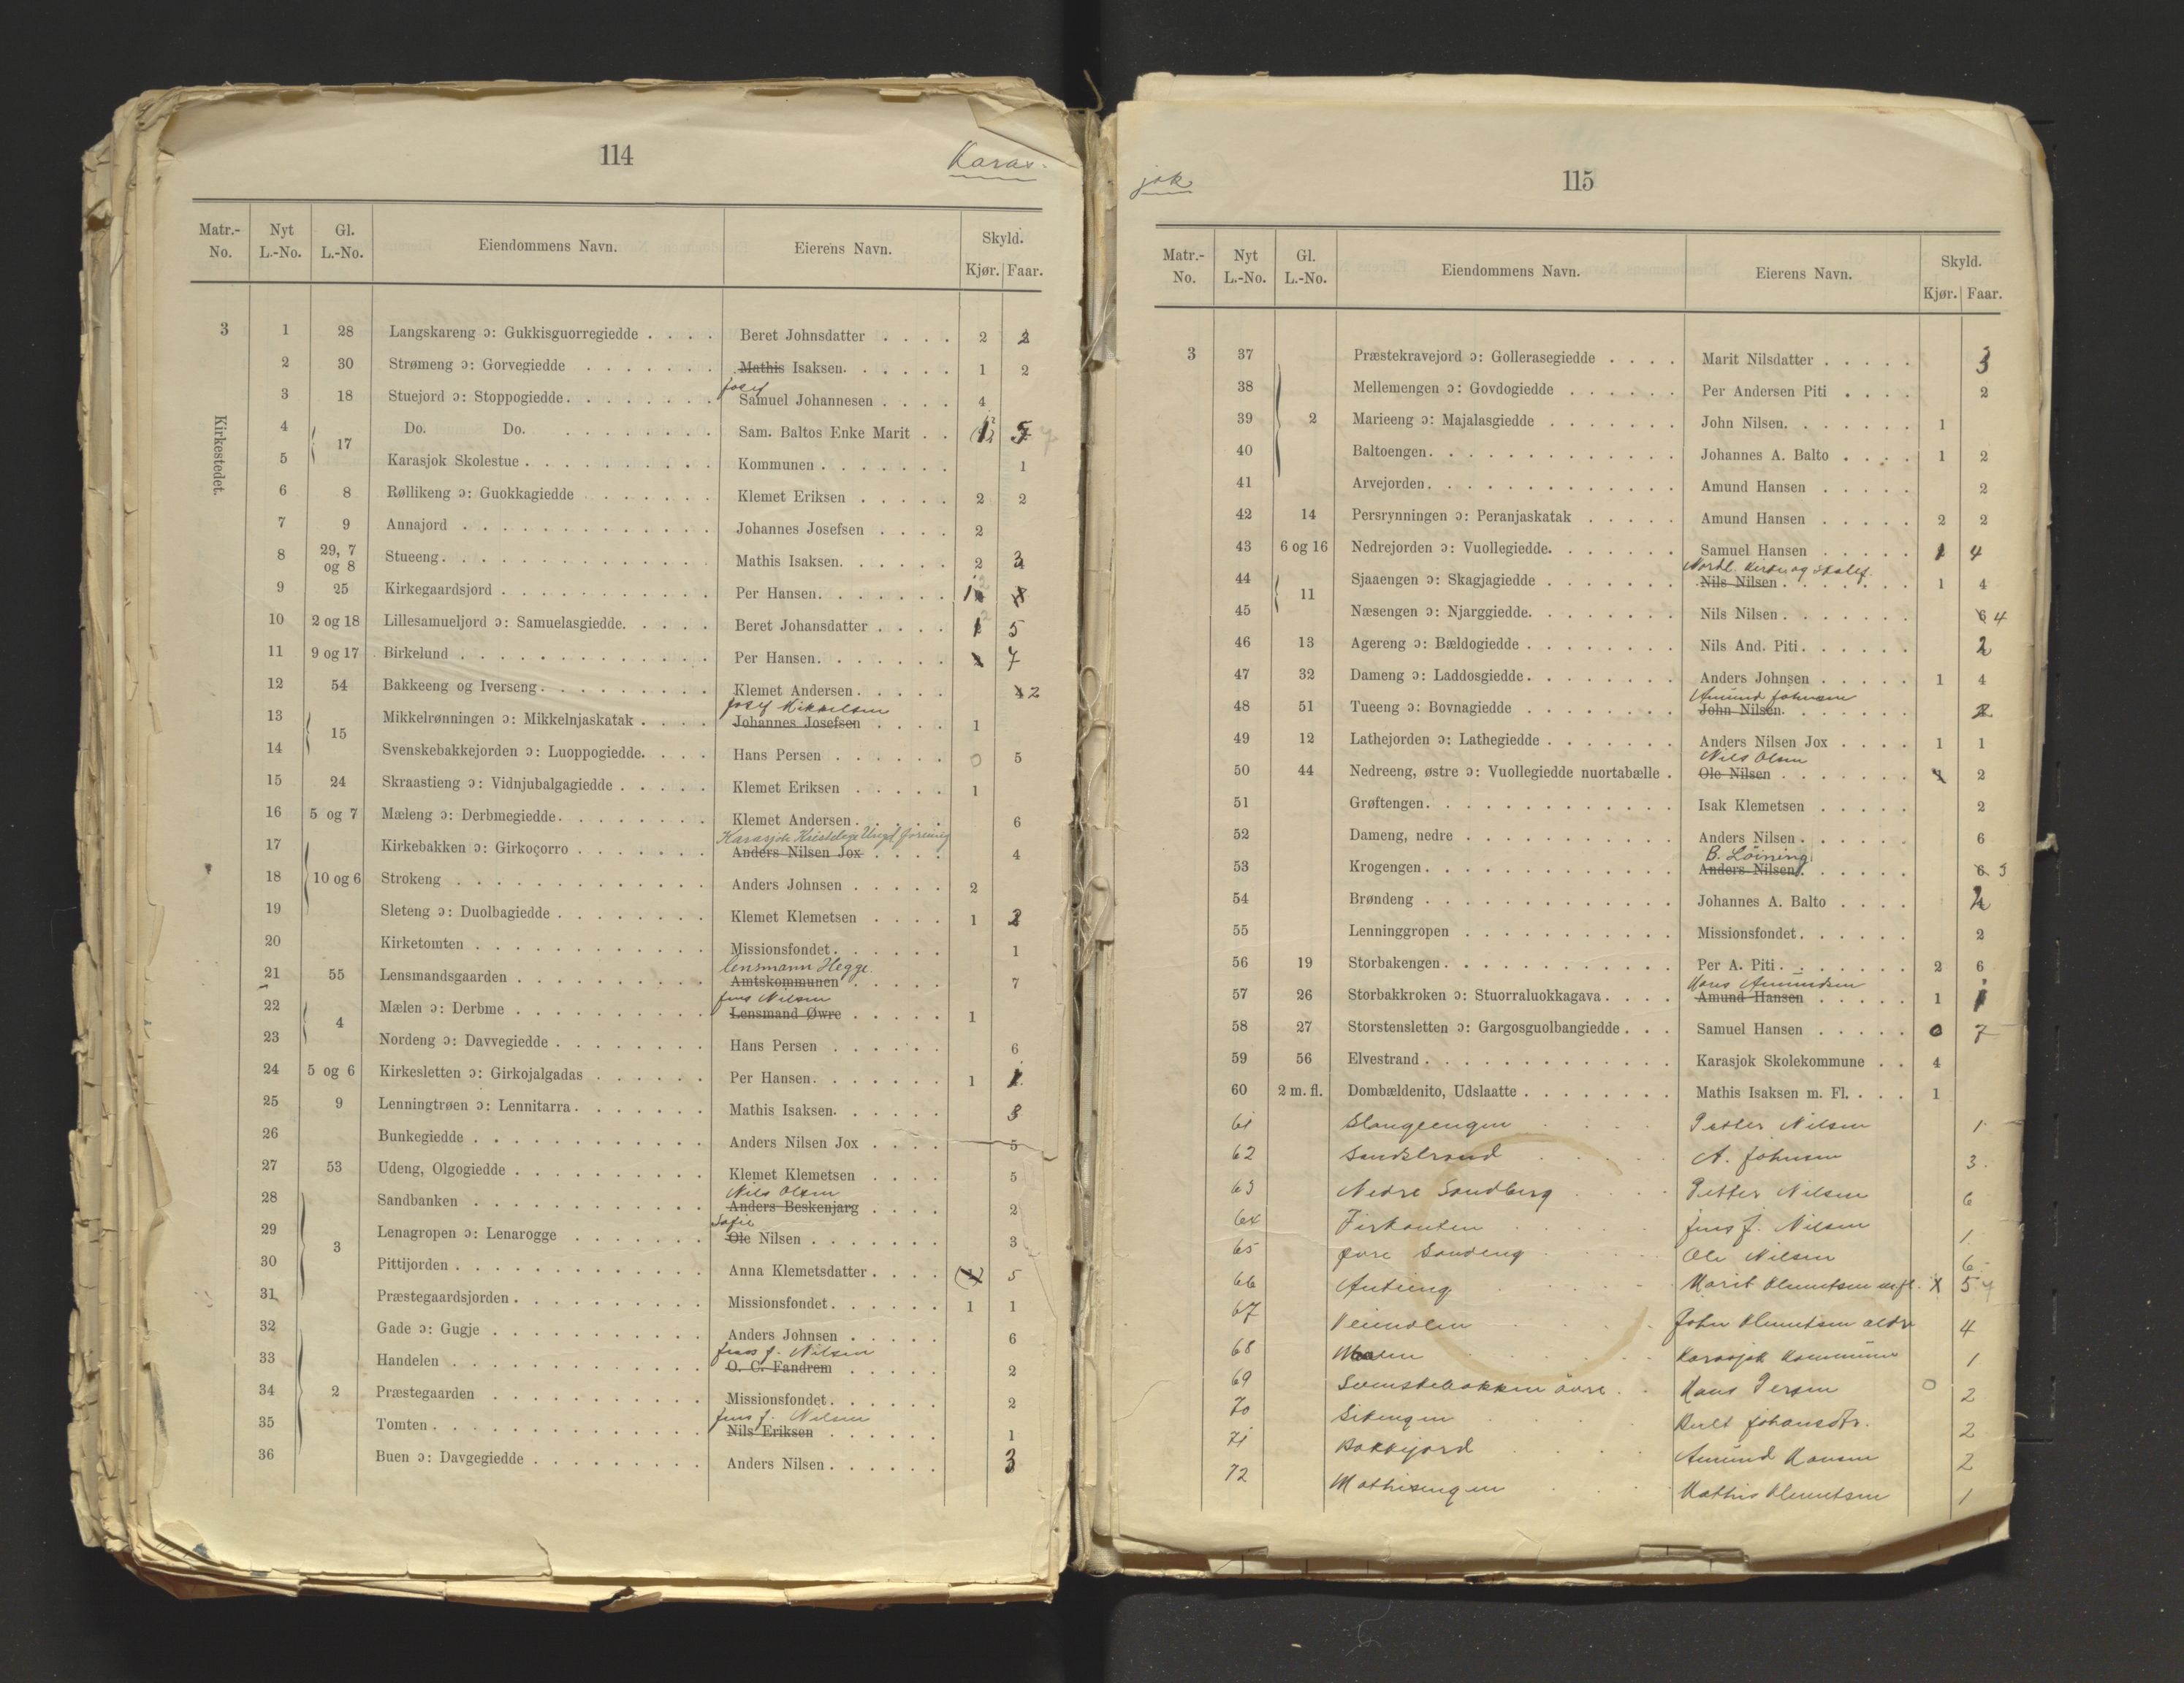 114
Karas-
Matr.-No. Nyt L.-No. Gl. L.-No. Eiendommens Navn. Eierens Navn. Skyld. Kjør. Faar.
Kirkestedet.
3 1 28 Langskareng ɔ: Gukkisguorregiedde . . . . Beret Johnsdatter . . . . 2 2
2 30 Strømeng ɔ: Gorvegiedde . . . . . . . Mathis Isaksen. . . . . . 1 2
Josef
3 18 Stuejord ɔ: Stoppogiedde . . . . . . . . Samuel Johannesen . . . . 4
4 17 Do. Do. . . . . . . . . Sam. Baltos Enke Marit . . 1 5 7
5 Karasjok Skolestue . . . . . . . . . . Kommunen . . . . . . . 1
6 8 Røllikeng ɔ: Guokkagiedde . . . . . . . Klemet Eriksen . . . . . 2 2
7 9 Annajord . . . . . . . . . . . . . Johannes Josefsen . . . . 2
8 29, 7 og 8 Stueeng . . . . . . . . . . . . . . Mathis Isaksen. . . . . . 2 3
9 25 Kirkegaardsjord . . . . . . . . . . . Per Hansen. . . . . . . 1
10 2 og 18 Lillesamueljord ɔ: Samuelasgiedde. . . . . Beret Johansdatter . . . . 2 5
11 9 og 17 Birkelund . . . . . . . . . . . . . Per Hansen. . . . . . . 7
12 54 Bakkeeng og Iverseng . . . . . . . . . Klemet Andersen . . . . . 4 2
Josef Mikkelsen
13 15 Mikkelrønningen ɔ: Mikkelnjaskatak . . . . Johannes Josefsen . . . . 1
14 Svenskebakkejorden ɔ: Luoppogiedde. . . . Hans Persen . . . . . . 0 5
15 24 Skraastieng ɔ: Vidnjubalgagiedde . . . . . Klemet Eriksen . . . . . 1
16 5 og 7 Mæleng ɔ: Derbmegiedde . . . . . . . . Klemet Andersen . . . . . 6
Karasjok Kristelige Ungd. forening
17 Kirkebakken ɔ: Girkoçorro . . . . . . . Anders Nilsen Jox . . . . 4
18 10 og 6 Strokeng . . . . . . . . . . . . . Anders Johnsen . . . . . 2
19 Sleteng ɔ: Duolbagiedde . . . . . . . . Klemet Klemetsen . . . . 1 2
20 Kirketomten . . . . . . . . . . . . Missionsfondet . . . . . . 1
lensmann Hegge.
21 55 Lensmandsgaarden . . . . . . . . . . Amtskommunen . . . . . 7
Jens Nilsen
22 4 Mælen ɔ: Derbme . . . . . . . . . . Lensmand Øwre . . . . . 1
23 Nordeng ɔ: Davvegiedde . . . . . . . . Hans Persen . . . . . . 6
24 5 og 6 Kirkesletten ɔ: Girkojalgadas . . . . . . Per Hansen. . . . . . . 1 1
25 9 Lenningtrøen ɔ: Lennitarra . . . . . . . Mathis Isaksen. . . . . . 3
26 Bunkegiedde . . . . . . . . . . . . Anders Nilsen Jox . . . . 5
27 53 Udeng, Olgogiedde . . . . . . . . . . Klemet Klemetsen . . . . 5
Nils Olsen
28 Sandbanken . . . . . . . . . . . . Anders Beskenjarg . . . . 2
Sofie
29 3 Lenagropen ɔ: Lenarogge . . . . . . . Ole Nilsen . . . . . . . 3
30 Pittijorden . . . . . . . . . . . . . Anna Klemetsdatter . . . . 5
31 Præstegaardsjorden . . . . . . . . . . Missionsfondet . . . . . . 1 1
32 Gade ɔ: Gugje . . . . . . . . . . . Anders Johnsen . . . . . 6
Jens J. Nilsen
33 Handelen . . . . . . . . . . . . . O. C. Fandrem . . . . . 2
34 2 Præstegaarden . . . . . . . . . . . Missionsfondet . . . . . . 2
Jens J. Nilsen
35 Tomten . . . . . . . . . . . . . . Nils Eriksen . . . . . . 1
36 Buen ɔ: Davgegiedde . . . . . . . . . Anders Nilsen . . . . . . 3
jok
115
Matr.-No. Nyt L.-No. Gl. L.-No. Eiendommens Navn. Eierens Navn. Skyld. Kjør. Faar.
3 37 Præstekravejord ɔ: Gollerasegiedde . . . . Marit Nilsdatter . . . . . 3
38 Mellemengen ɔ: Govdogiedde . . . . . . Per Andersen Piti . . . . 2
39 2 Marieeng ɔ: Majalasgiedde . . . . . . . John Nilsen. . . . . . . 1
40 Baltoengen. . . . . . . . . . . . . Johannes A. Balto . . . . 1 2
41 Arvejorden. . . . . . . . . . . . . Amund Hansen . . . . . 2
42 14 Persrynningen ɔ: Peranjaskatak . . . . . Amund Hansen . . . . . 2 2
43 6 og 16 Nedrejorden ɔ: Vuollegiedde. . . . . . . Samuel Hansen . . . . . 1 4
Nordl. kirke og skolef.
44 11 Sjaaengen ɔ: Skagjagiedde . . . . . . . Nils Nilsen . . . . . . . 1 4
45 Næsengen ɔ: Njarggiedde. . . . . . . . Nils Nilsen . . . . . . . 6 4
46 13 Agereng ɔ: Bældogiedde . . . . . . . . Nils And. Piti . . . . . . 2
47 32 Dameng ɔ: Laddosgiedde . . . . . . . . Anders Johnsen . . . . . 1 4
Amund Johnsen
48 51 Tueeng ɔ: Bovnagiedde . . . . . . . . John Nilsen. . . . . . . 2
49 12 Lathejorden ɔ: Lathegiedde . . . . . . . Anders Nilsen Jox . . . . 1 1
Nils Olsen
50 44 Nedreeng, østre ɔ: Vuollegiedde nuortabælle . Ole Nilsen . . . . . . . 2
51 Grøftengen. . . . . . . . . . . . . Isak Klemetsen . . . . . 2
52 Dameng, nedre . . . . . . . . . . . Anders Nilsen . . . . . . 6
B. Löining
53 Krogengen . . . . . . . . . . . . . Anders Nilsen . . . . . . 6 3
54 Brøndeng . . . . . . . . . . . . . Johannes A. Balto . . . .
55 Lenninggropen . . . . . . . . . . . Missionsfondet . . . . . . 2
56 19 Storbakengen . . . . . . . . . . . . Per A. Piti . . . . . . . 2 6
Hans Amundsen
57 26 Storbakkroken ɔ: Stuorraluokkagava . . . . Amund Hansen . . . . . 1 1
58 27 Storstensletten ɔ: Gargosguolbangiedde . . . Samuel Hansen . . . . . 0 7
59 56 Elvestrand . . . . . . . . . . . . . Karasjok Skolekommune . . 4
60 2 m. fl. Dombældenito, Udslaatte . . . . . . . . Mathis Isaksen m. Fl. . . . 1
61 Slangeengen Petter Nilsen 1
62 Sandstrand A. Johnsen 3.
63 Nedre Sandberg Petter Nilsen 6
64 Firkanten Jens J. Nilsen 1
65 Øvre Sandeng Ole Nilsen 6
66 Anteeng Marit Klemetsen m.fl. 5
67 Veiendlen John Klemetsen aldr 4
68 Karasjok Kommune 1
69 Svenskebakken övre Hans Persen 0 2
70 Sitengen Berit Johansdtr. 2
71 Bakkejord Amund Hansen 2
72 Mathisengen Mathis Klemetsen 1